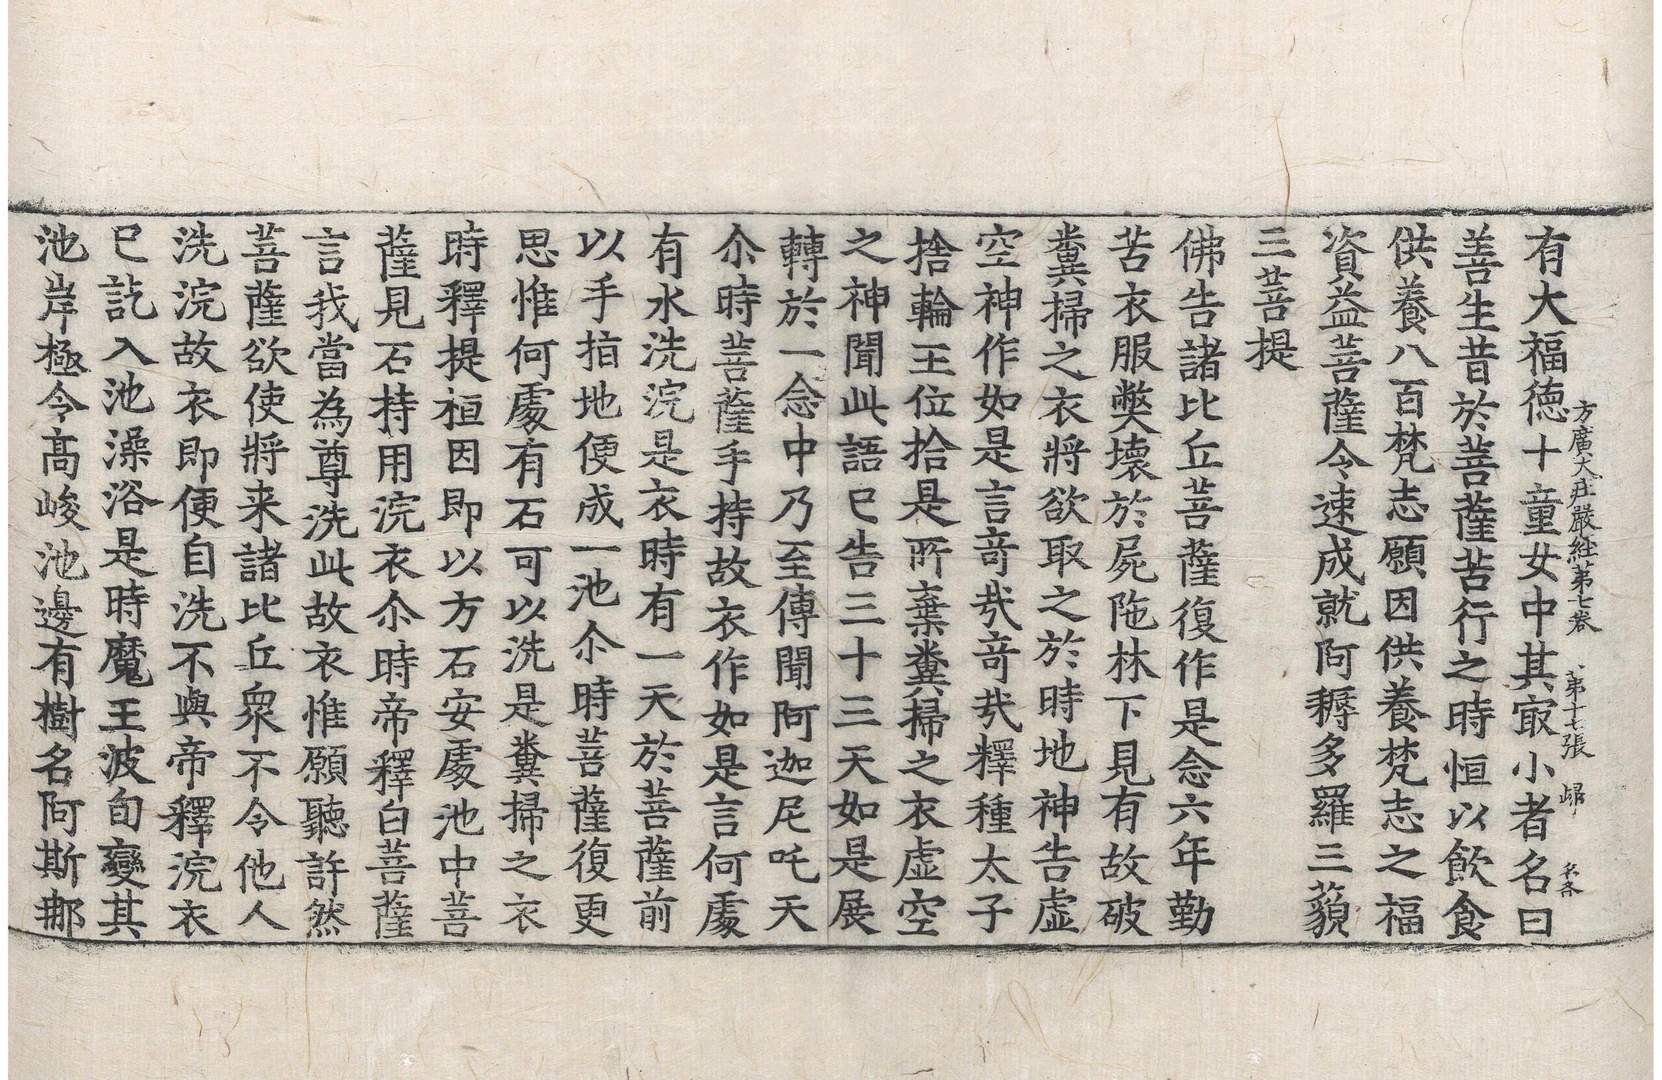 方廣大莊嚴経第七卷 第十七張 歸
有大福德十童女中其㝡小者名曰
善生昔於菩薩苦行之時恒以飲食
供養八百梵志願因供養梵志之福
資益菩薩令速成就阿耨多羅三藐
三菩提
佛告諸比丘菩薩復作是念六年勤
苦衣服弊壞於屍陁林下見有故破
糞掃之衣將欲取之於時地神告虛
空神作如是言竒㢤竒㢤釋種太子
捨輪王位拾是所棄糞掃之衣虛空
之神聞此語已告三十三天如是展
轉於一念中乃至傳聞阿迦尼吒天
尒時菩薩手持故衣作如是言何處
有水洗浣是衣時有一天於菩薩前
以手指地便成一池尒時菩薩復更
思惟何處有石可以洗是糞掃之衣
時釋提桓因即以方石安處池中菩
薩見石持用浣衣尒時帝釋白菩薩
言我當為尊洗此故衣惟願聽許然
菩薩欲使將来諸比丘衆不令他人
洗浣故衣即便自洗不與帝釋浣衣
已訖入池澡浴是時魔王波旬變其
池岸極令高峻池邊有樹名阿斯那